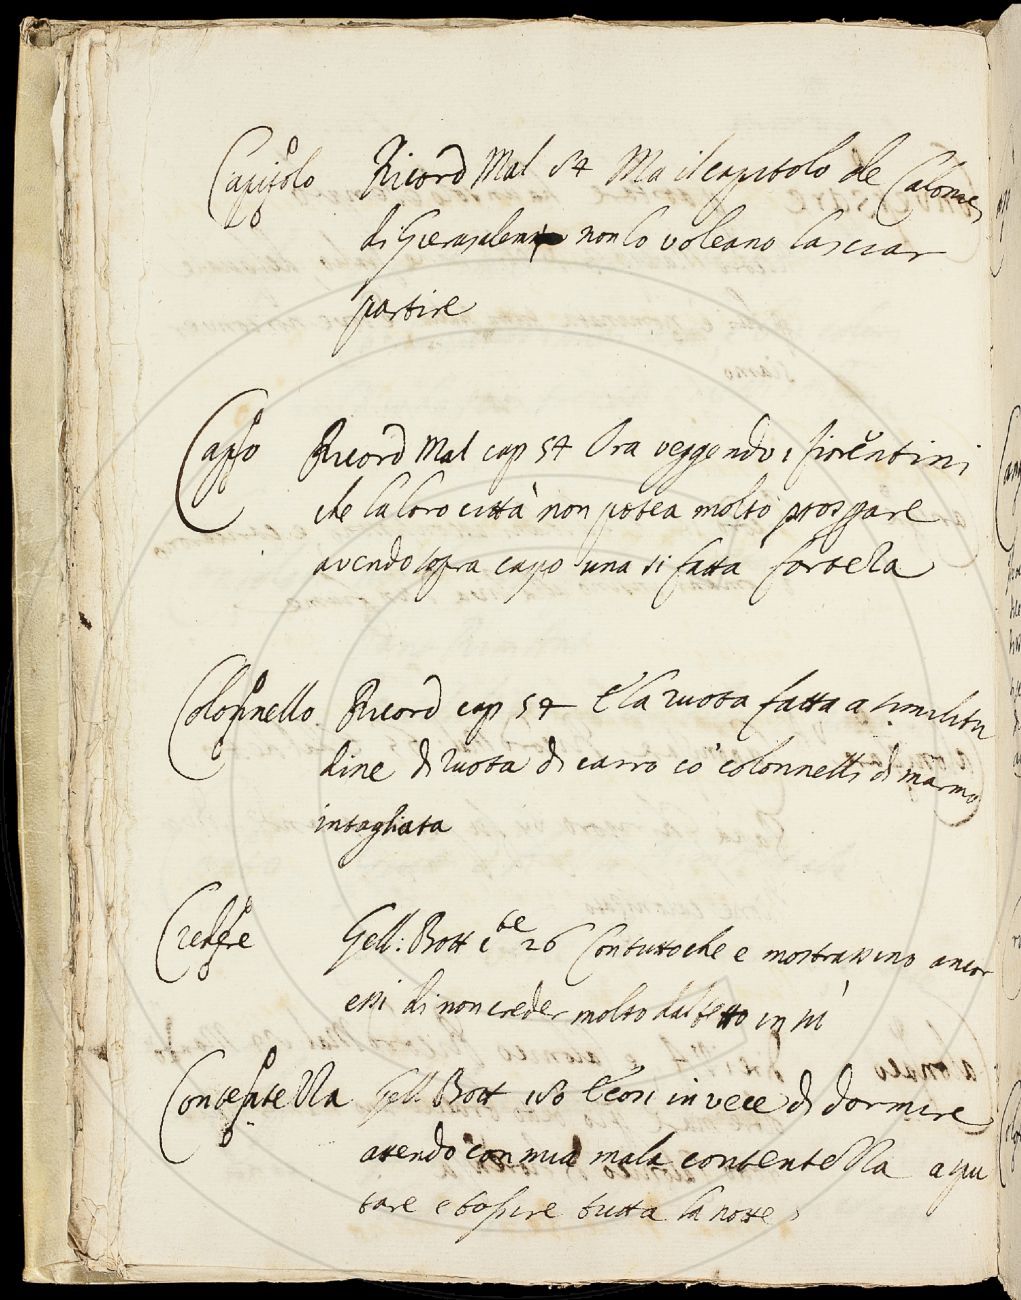 Capitolo Ricord Mal 54 Ma il capitolo de Calonaci
di Gierusalem non lo voleano lasciar
partire
Capo Ricord Mal cap 54 Ora veggendo i fiorentini
che la loro città non potea molto prosperare
avendo sopra capo una si fatta fortezza
Colonnello Ricord cap 54 E la ruota fatta a similitu
dine di ruota di carro cō colonnelli di marmo
intagliata
Credere Gell: Bott c.e 26 Contuttoche e mostrassino ancor
essi di non creder molto dal tetto in sù
Contentezza Gell Bott 180 E così in vece di dormire
attendo con mia mala contentezza a spu
tare e tossire tutta la notte